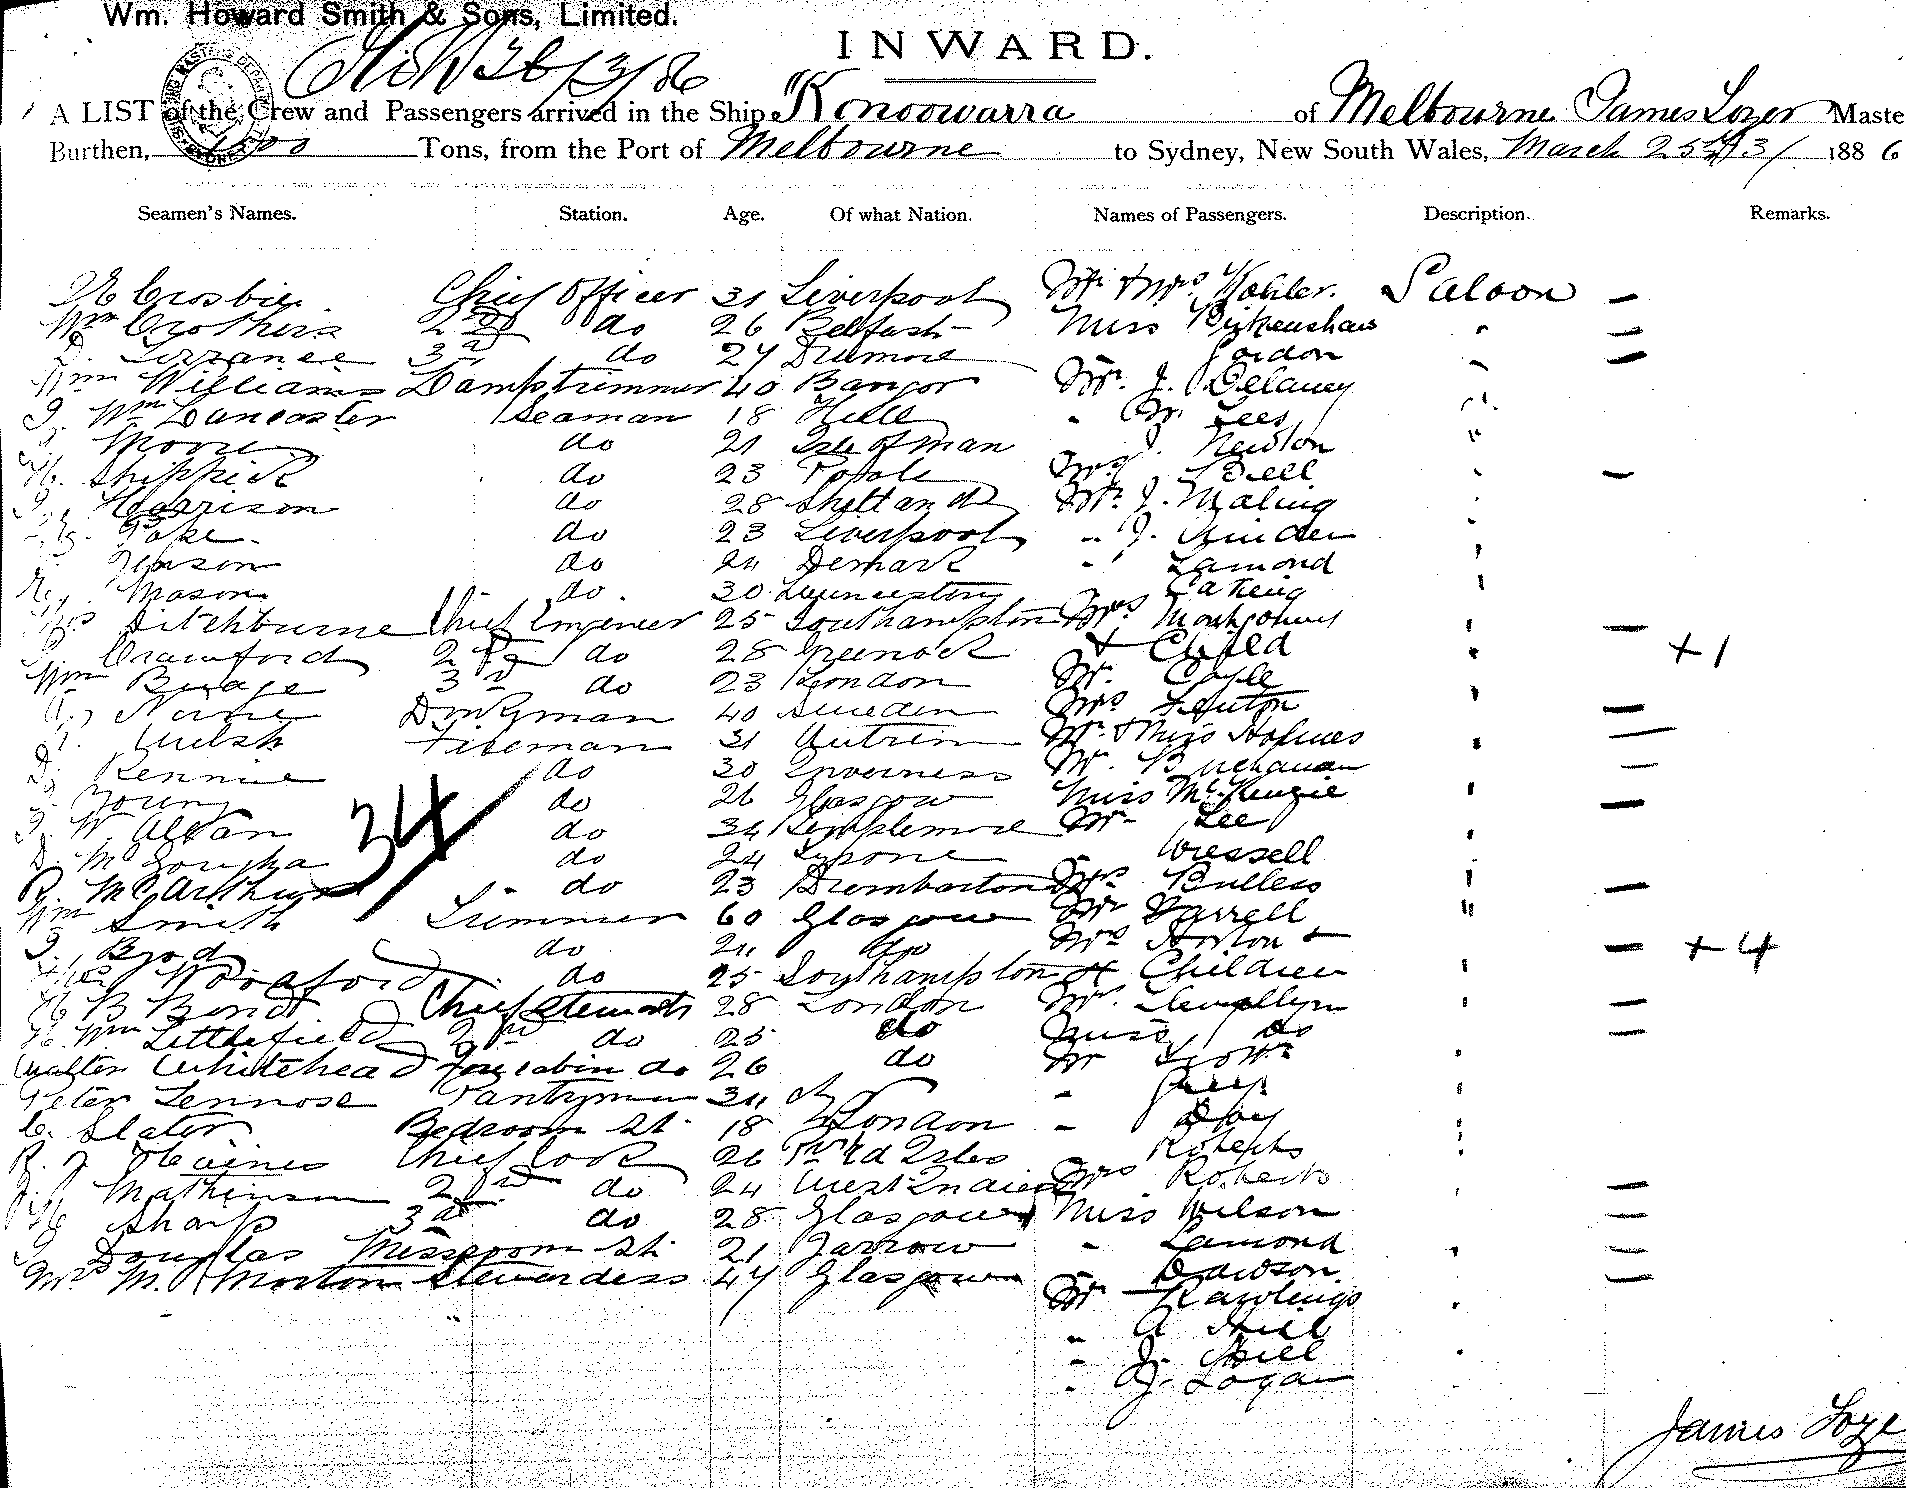 Wm. Howard Smith & Sons, Limited.
INWARD.
26/3/86
A LIST of the Crew and Passengers arrived in the Ship "Konoowarra of Melbourne James Lozer Maste
Burthen, Tons, from the Port of Melbourne to Sydney, New South Wales, March 25th 1886
Seamen's Names. Station. Age. Of what Nation. Names of Passengers. Description. Remarks.
Crosbie Chief Officer 31 Liverpool Mr & Mrs Kohler. Saloon —
Wm Crothers 2nd do 26 Belfast Miss Birkenshaw " —
D. 3rd do 27 Dremore Gordon —
Wm Williams Lamptrimmer 40 Bangor Mr. J. Delaney
J. Wm Lancaster Seaman 18 Hull " W. Lees
Moore do 21 Isle of man J. Newton
H. Shippick do 23 Poole Mrs Bell —
Harrison do 28 Shetland Mr. J. Maling
Pope do 23 Liverpool " J.
Jenson do 24 Demark " Lamond
Mason do 30 Launceston
Ditchburne Chief Engineer 25 Southampton Mrs Montgomery —
Crawford 2nd do 28 Greenock + Child +1
Wm Budge 3rd do 23 London Mr. Coyle
Nome Donkyman 40 Sweden Mrs Fenton —
Welsh Fireman 31 Antrim Mr. & Miss Holmes —
D. Rennie do 30 Inverness Mr. Buchanan —
Young do 26 Glasgow Miss McKenzie —
W. Allan do 34 Templemore Mr Lee
D. do 24 Tyrone " Wessell
R. McArthur do 23 Dumbarton Mrs Bulless —
34
Wm Smith Trimmer 60 Glasgow Mr Farrell
Boyd do 21 do Mrs Horton + — +4
Woodford do 25 Southampton 4 Children
B Bondt Chief Steward 28 London Mr. Llewellyn —
Wm Littlefield 2nd do 25 do Miss do —
Walter Whitehead Fore cabin do 26 do Mr Scott
Peter Lennose Pantryman 31 do "
C. Slater Bedroom St. 18 London " Day
R. J. Haines Chief Cook 26 " Roberts
Mathinson 2nd do 24 West Indies Mrs Roberts —
Sharp 3rd do 28 Glasgow Miss Wilson —
Douglas Messroom St. 21 Jarrow " Lamond —
Mrs M. Morton Stewardess 47 Glasgow " Dawson. —
Mr Rawlings
" A Hill
" J. Hill
" J. Logan
James Loze